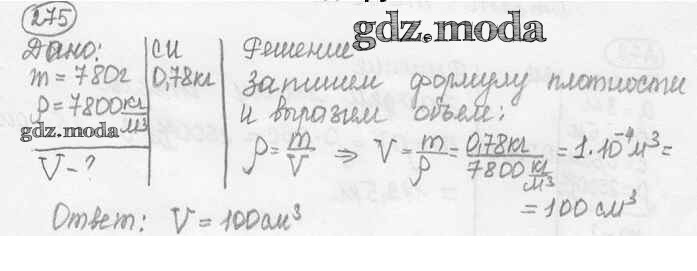 275
gdz.moda
Дано:
m = 780г
ρ = 7800 кг/м³
gdz.moda
V - ?
СИ
0,78кг
Решение
Запишем формулу плотности
и выразим объем:
ρ = m/V ⇒ V = m/ρ = 0,78кг / 7800 кг/м³ = 1·10⁻⁴ м³ =
= 100 см³
Ответ: V = 100см³